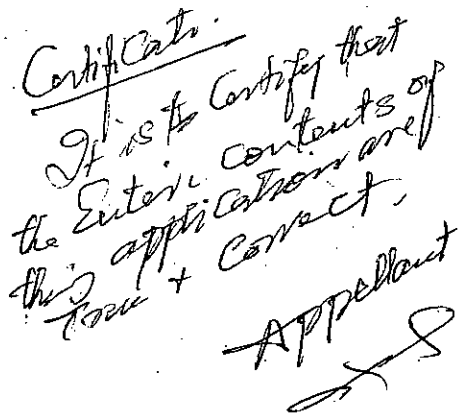 Certificate.
It is to Certify that
the Entire contents of
this application are
True + Correct.
Appellant